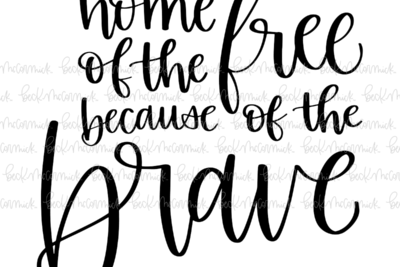 home
of the free
because of the
brave